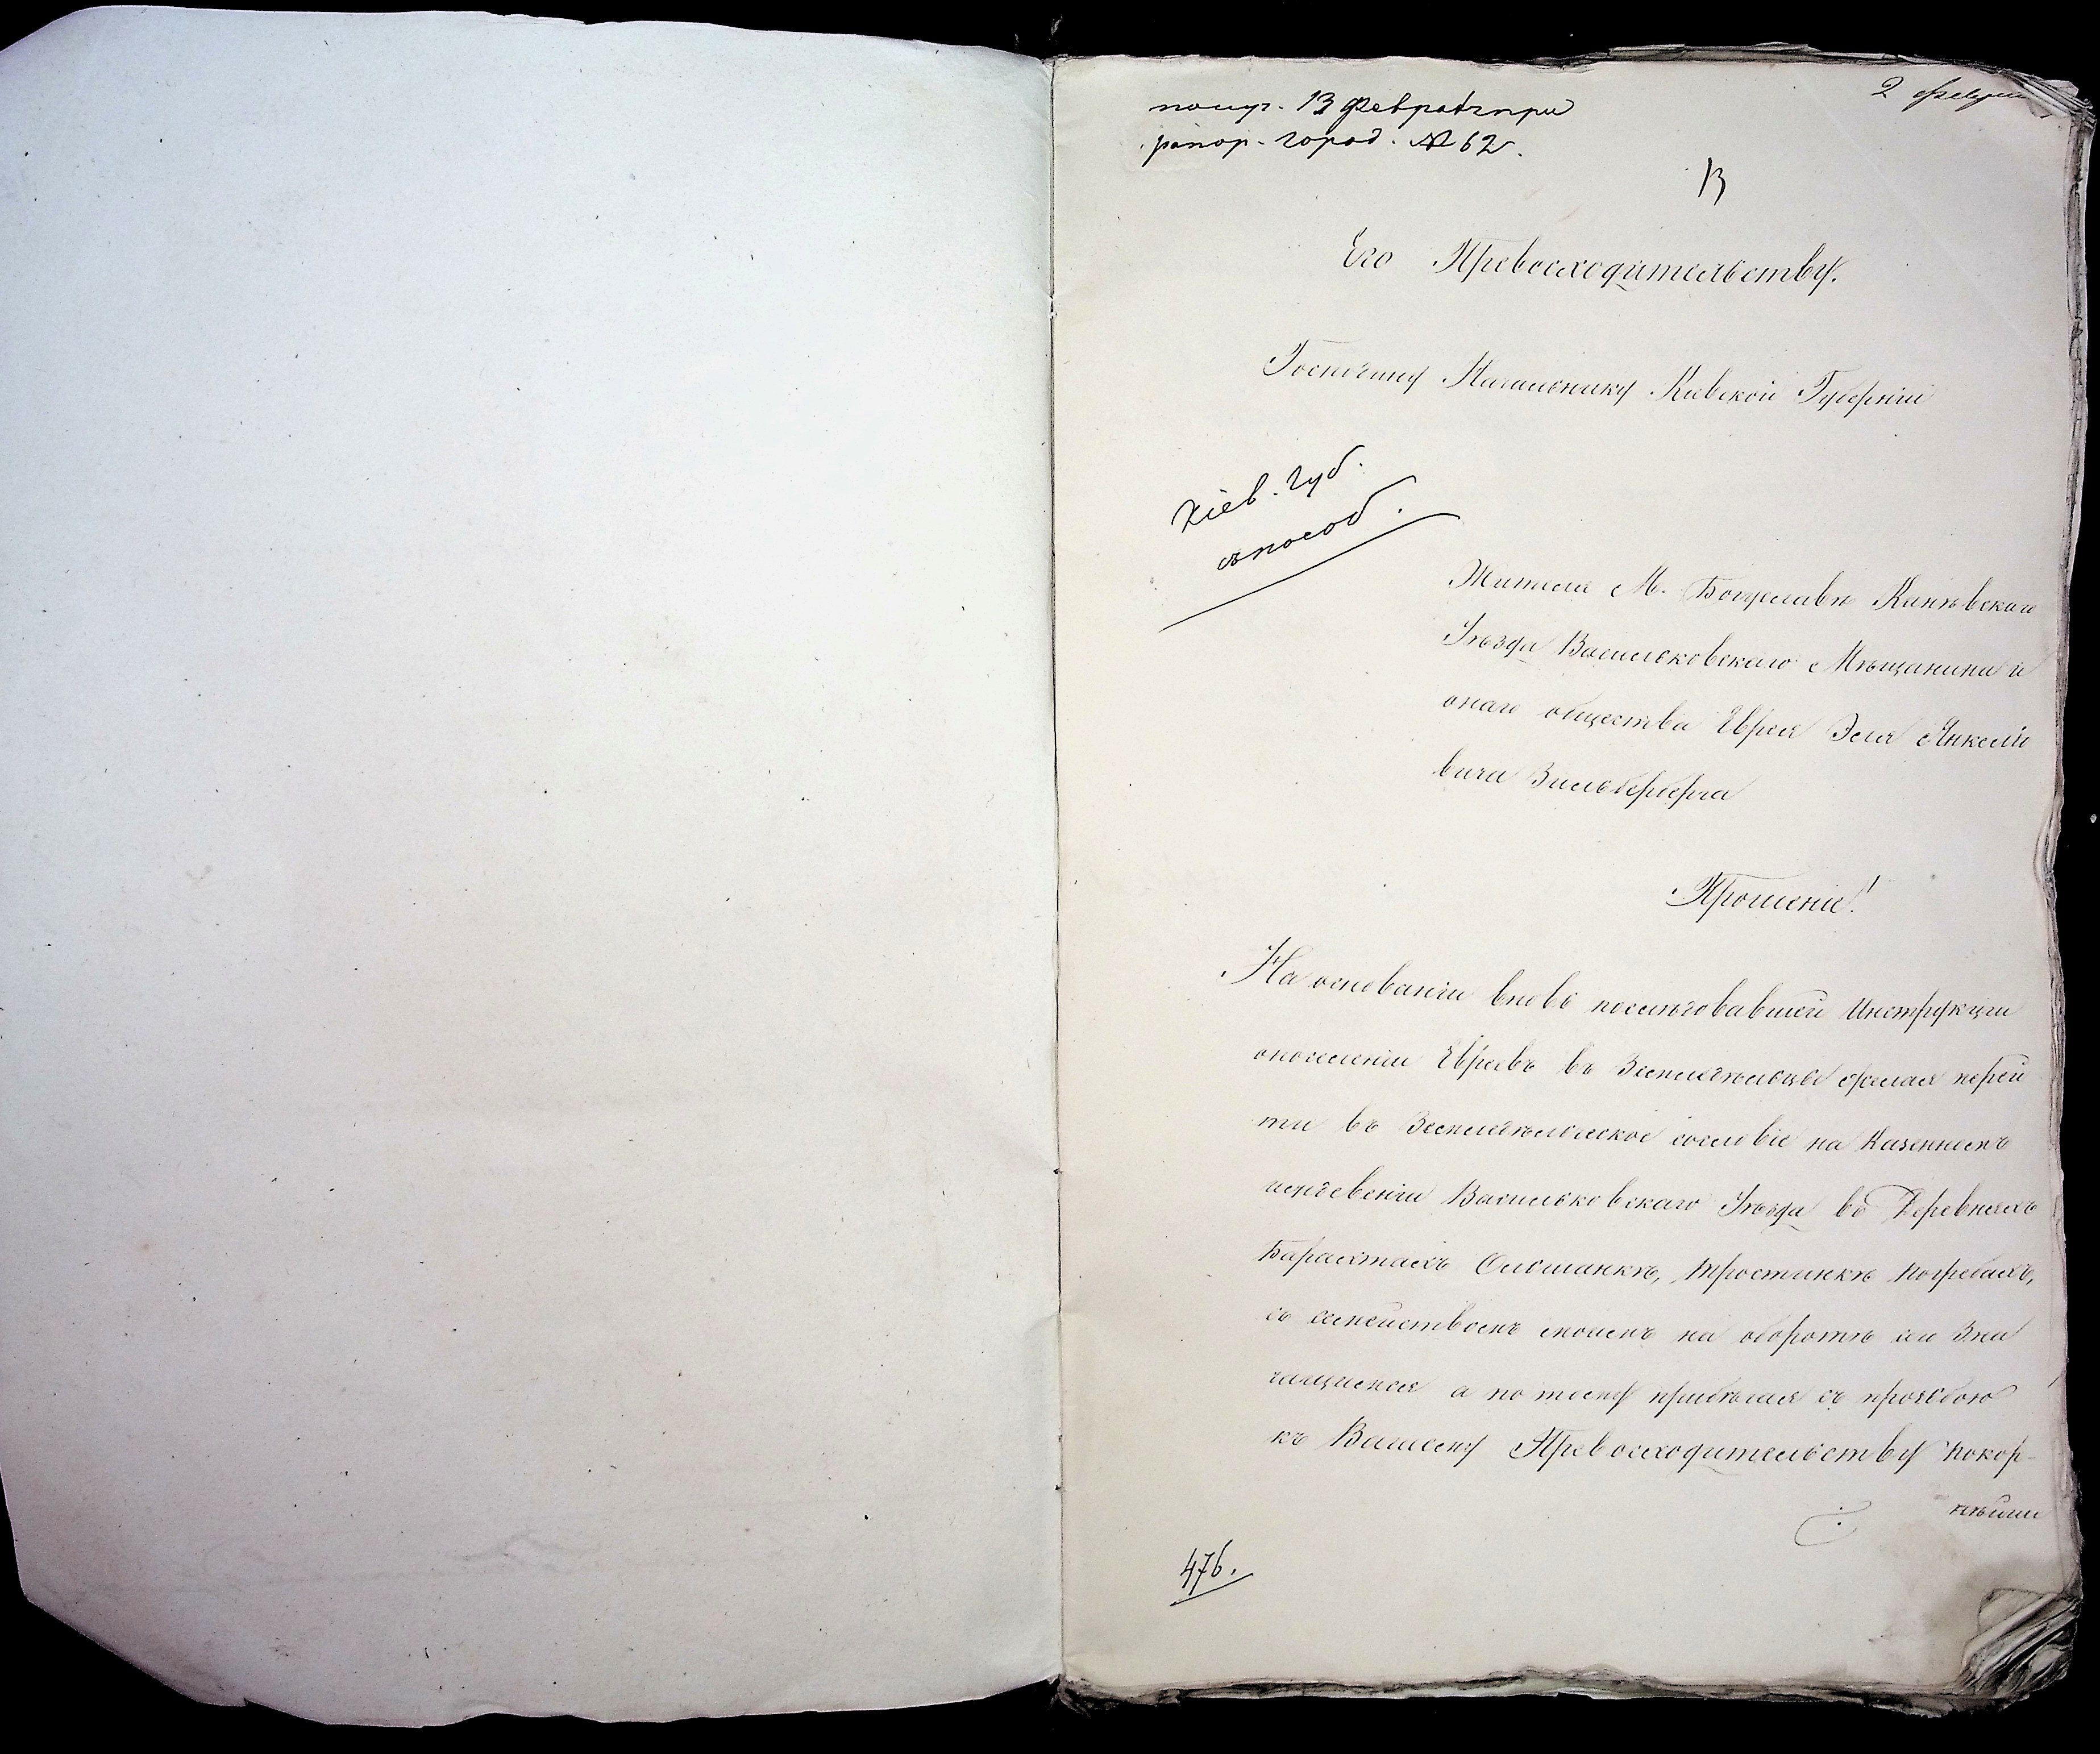 получ. 13 Февраля при
рапор. город. № 62.
2
13
Его Превосходительству.
Господину Начальнику Киевской Губернiи
Кiев. Губ.
Жителя М. Богуслава Каневскаго
Уѣзда Васильковскаго Мѣщанина и
онаго общества Еврея Эля Янкелио
вича Зильбербеpга
Прошенiе!
На основанiи вновь последовавшей Инструкцiи
опоселенiи Евреевъ въ Земледѣльцы желая перей
ти въ Земледѣльческое сословiе на Казенныхъ
Васильковскаго Уѣзда въ Деревняхъ
Барахтахъ Ольшанкѣ, Тростинкѣ Погребахъ,
съ семействомъ моимъ на оборотѣ сей Зна
чащимся а по тому прибѣгая съ прозьбою
къ Вашему Превосходительству покор-
нѣйше
476.